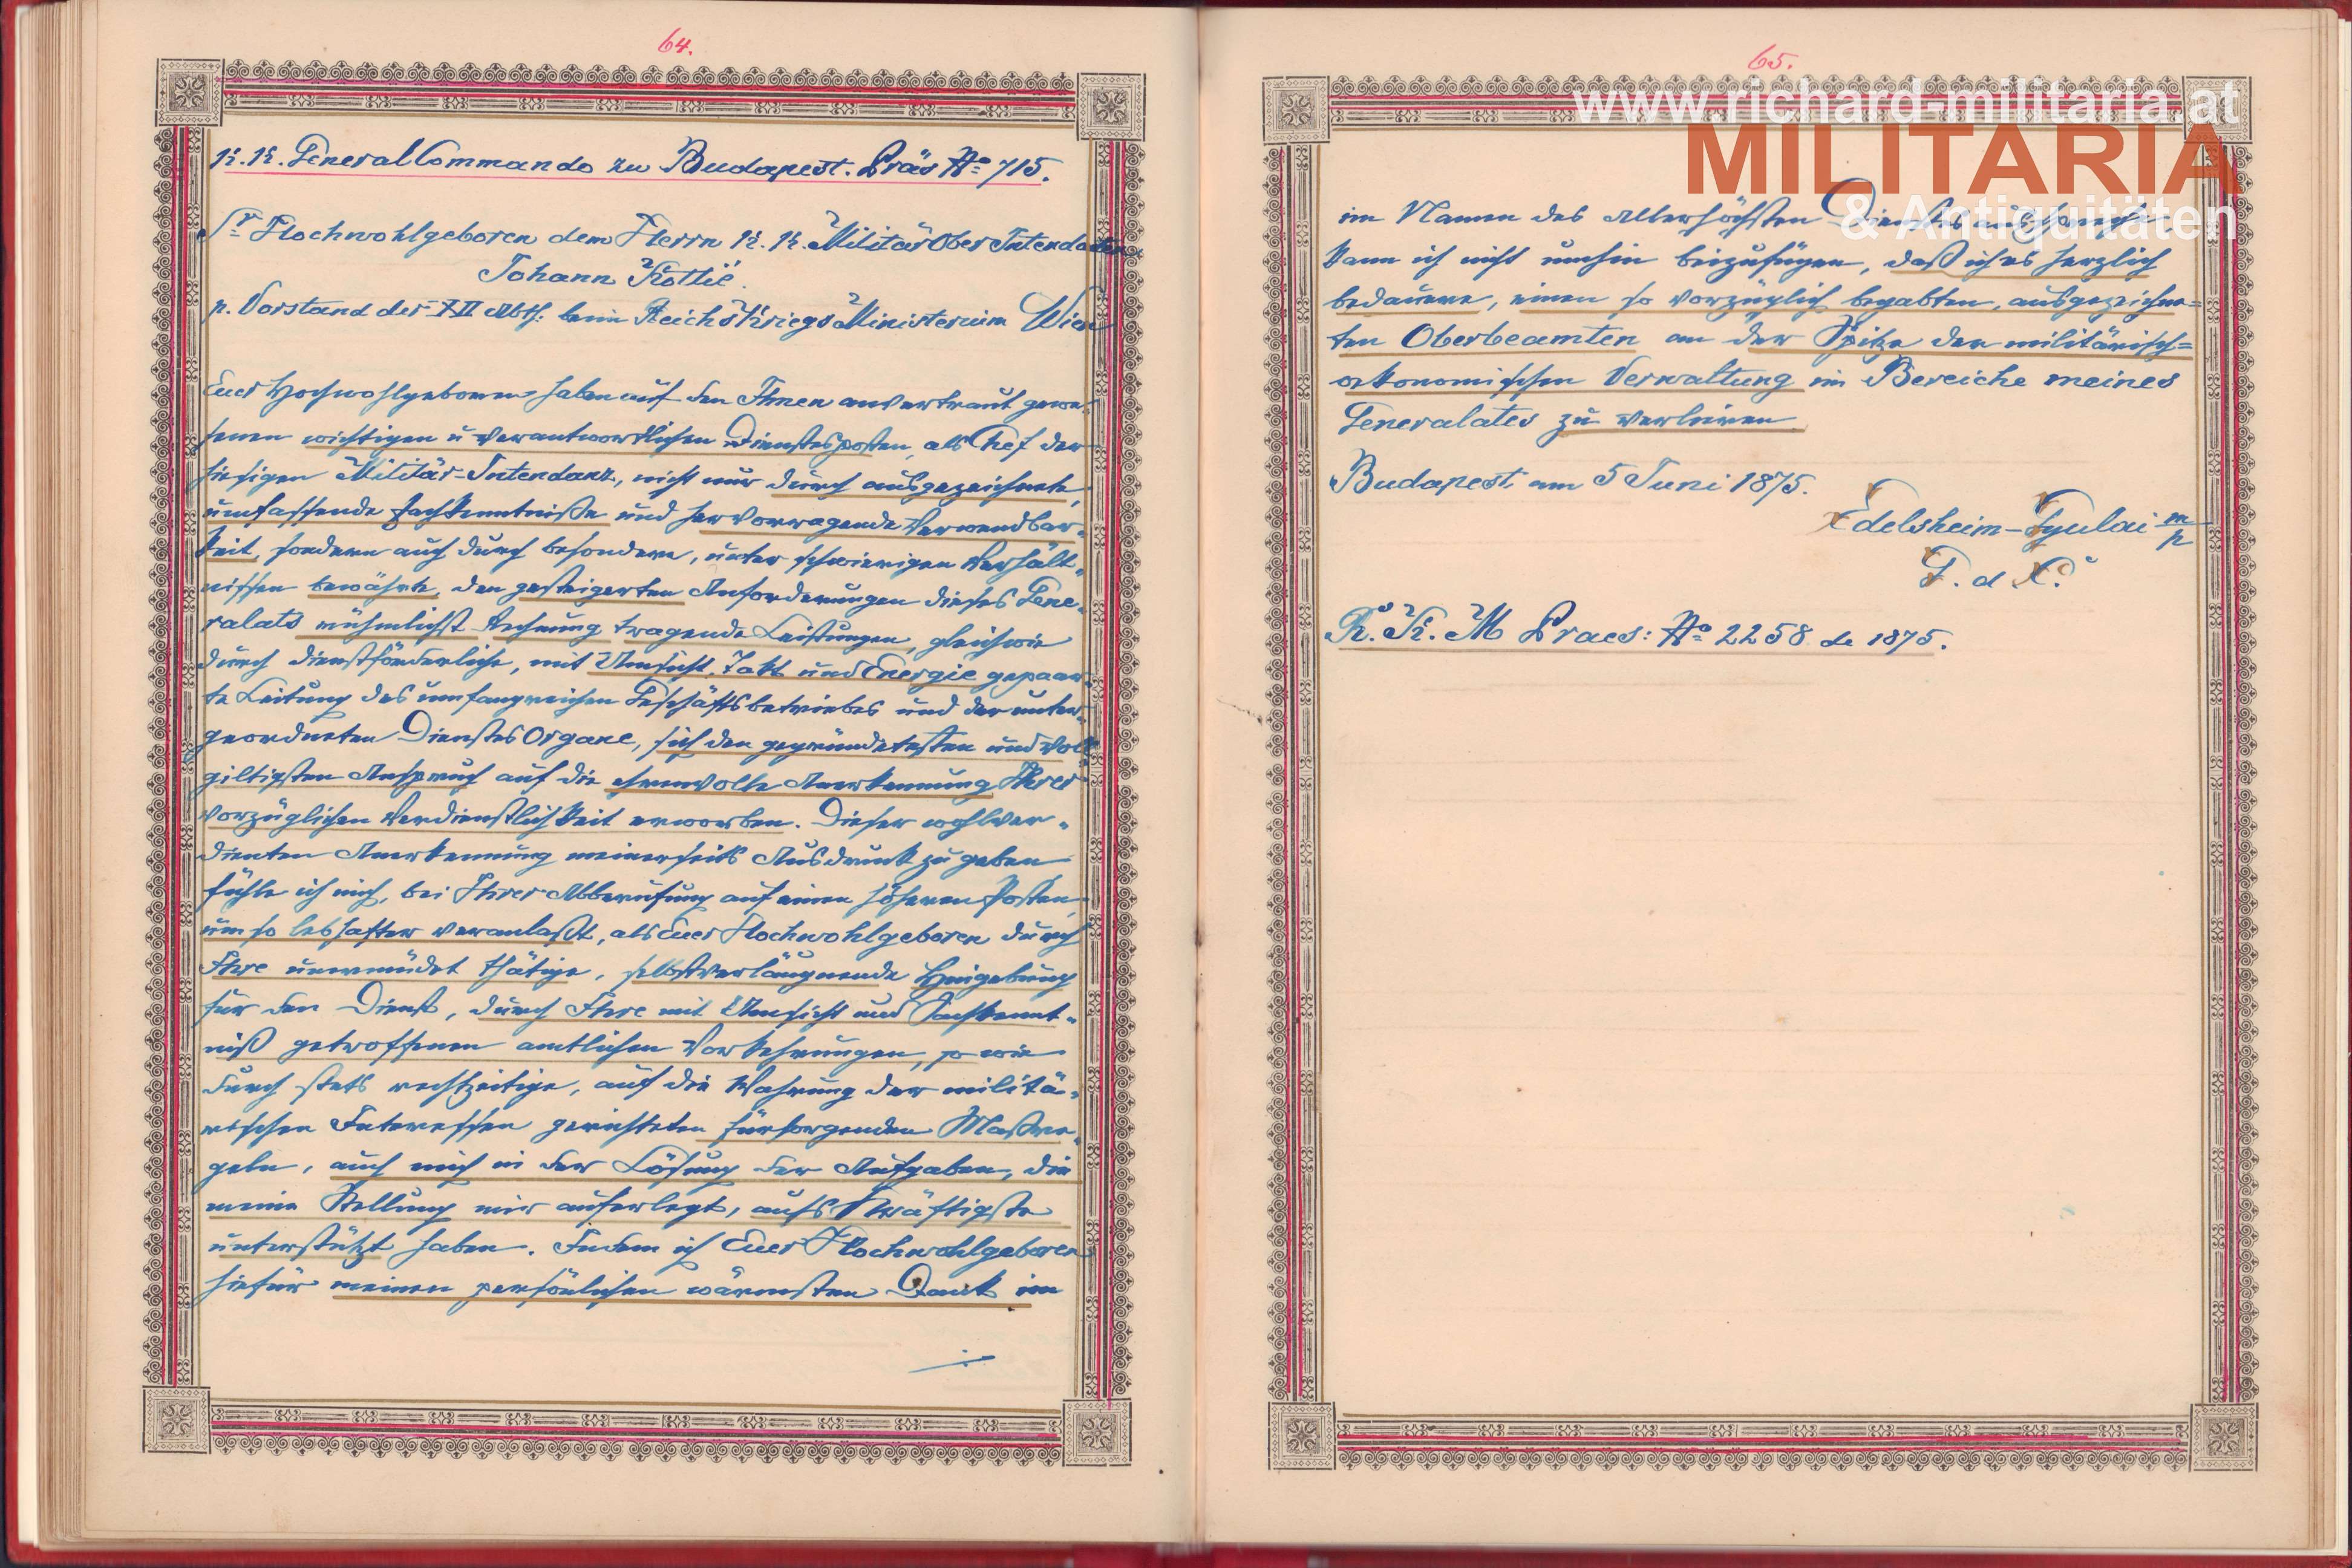 64.
K. K. General Commando zu Budapest. Präs No 715.
Sr Hochwohlgeboren dem Herrn K. K. Militär Ober Intendanten
Johann Kottié.
p. Vorstand der XII Abth: beim Reichs Kriegs Ministerium Wien
Euer Hochwohlgeboren haben auf den Ihnen anvertraut gewe-
senen wichtigen u verantwortlichen Dienstesposten, als Chef der
hiesigen Militär-Intendanz, nicht nur durch ausgezeichnete,
umfassende Fachkenntniße und hervorragende Verwendbar-
keit, sondern auch durch besondere, unter schwierigen Verhält-
nissen bewährte, den gesteigerten Anforderungen dieses Gene-
ralats rühmlichst Rechnung tragende Leistungen, gleichwie
durch dienstförderliche, mit Umsicht, Takt und Energie gepaar-
te Leitung des umfangreichen Geschäftsbetriebes und der unter-
geordneten Dienstes Organe, sich den gegründetesten und voll-
giltigsten Anspruch auf die ehrenvolle Anerkennung Ihrer
vorzüglichen Verdienstlichkeit erworben. Dieser wohlver-
dienten Anerkennung meinerseits Ausdruck zu geben
fühle ich mich, bei Ihrer Abberufung auf einen höheren Posten,
um so lebhafter veranlaßt, als Euer Hochwohlgeboren durch
Ihre unermüdet thätige, selbstverläugnende Hingebung
für den Dienst, durch Ihre mit Umsicht und Sachkennt-
niß getroffenen amtlichen Vorkehrungen, so wie
durch stets rechtzeitige, auf die Wahrung der militä-
rischen Interessen gerichteten fürsorgenden Maßre-
geln, auch mich in der Lösung der Aufgaben, die
meine Stellung mir auferlegt, aufs Kräftigste
unterstützt haben. Indem ich Euer Hochwohlgeboren
hiefür meinen persönlichen wärmsten Dank im
65.
im Namen des Allerhöchsten Dienstes ausspreche,
kann ich nicht umhin beizufügen, daß ich es herzlich
bedauere, einen so vorzüglich begabten, ausgezeichne=
ten Oberbeamten an der Spitze der militärisch=
oekonomischen Verwaltung im Bereiche meines
Generalates zu verlieren
Budapest, am 5 Juni 1875.
Edelsheim-Gyulai m/p
G. d C.
R. K. M Praes: No 2258 de 1875.
www.richard-militaria.at
MILITARIA
& Antiquitäten